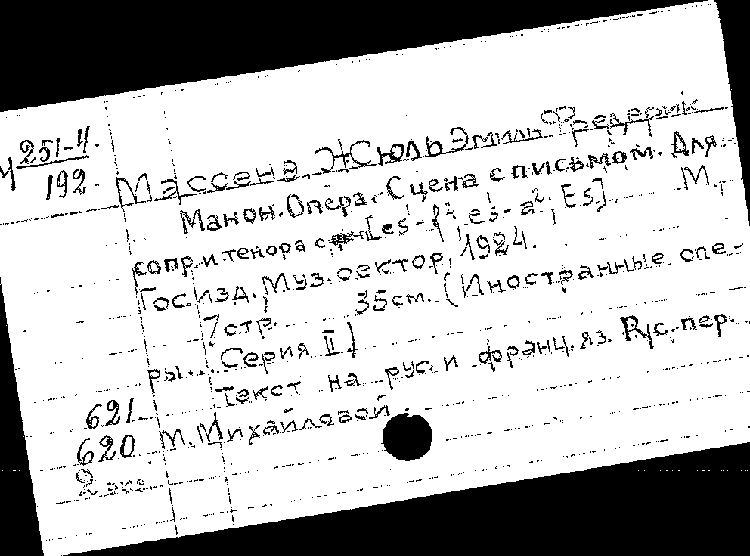 М 251-4.
192.
Массена, Жюль Эмиль Фредерик
Манон. Опера. Сцена с письмом. Для
сопр. и тенора с фп [es-f², es-a²; Es]. М.,
Гос. изд. Муз. сектор, 1924.
7 стр. 35 см. (Иностранные опе-
ры... Серия II)
Текст на рус. и франц. яз. Рус. пер.
М. Михайловой.
621
620
2 экз.